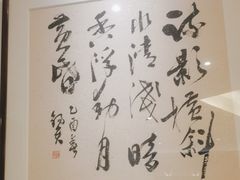 疏影横斜
水清淺暗
香浮動月
黄昏
乙酉